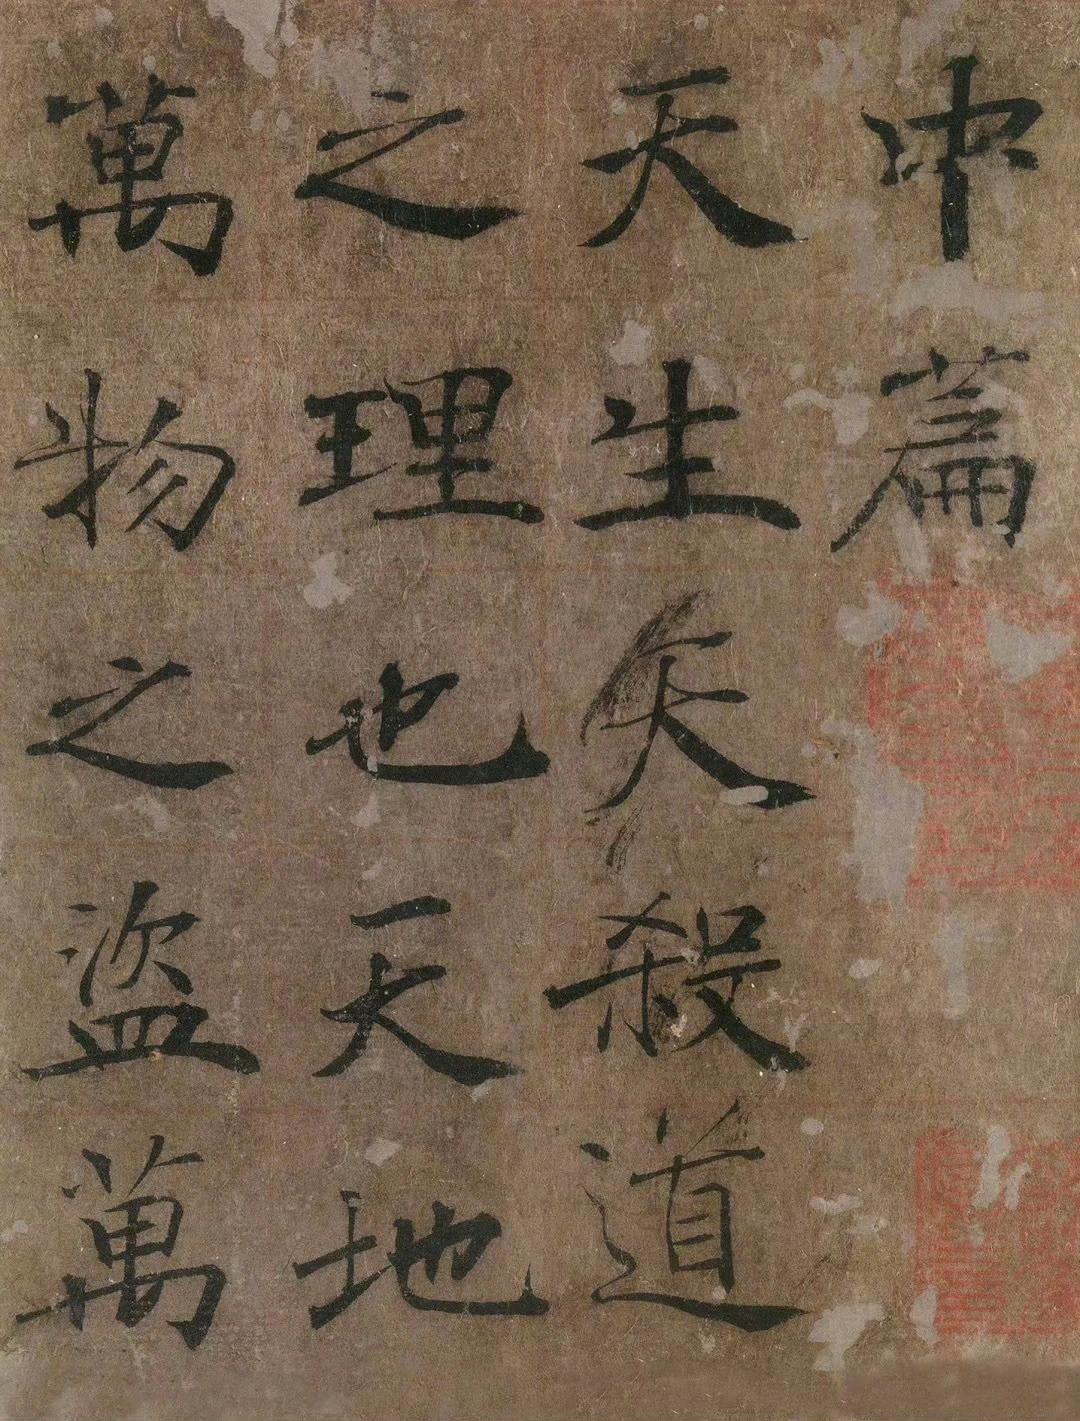 中萹
天生天殺道
之理也天地
萬物之盜萬